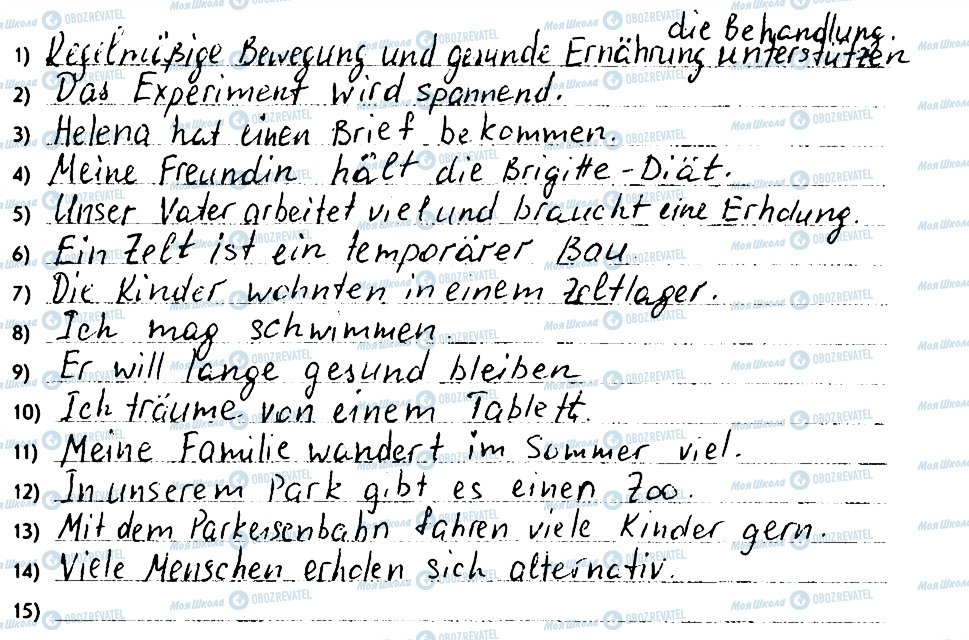 die Behandlung.
1) Regelmäßige Bewegung und gesunde Ernährung unterstützen
2) Das Experiment wird spannend.
3) Helena hat einen Brief bekommen.
4) Meine Freundin hält die Brigitte-Diät.
5) Unser Vater arbeitet viel und braucht eine Erholung.
6) Ein Zelt ist ein temporärer Bau.
7) Die Kinder wohnten in einem Zeltlager.
8) Ich mag schwimmen.
9) Er will lange gesund bleiben
10) Ich träume von einem Tablett.
11) Meine Familie wandert im Sommer viel.
12) In unserem Park gibt es einen Zoo.
13) Mit dem Parkeisenbahn fahren viele Kinder gern.
14) Viele Menschen erholen sich alternativ.
15)